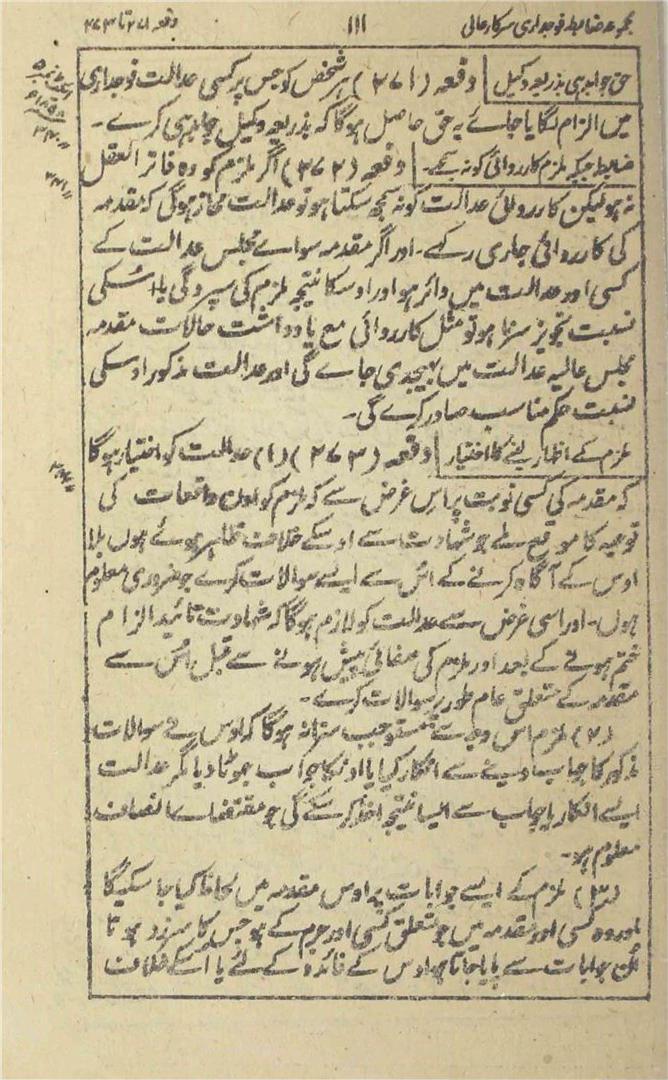 مجموعہ ضابطہ فوجداری سرکار عالی ۱۱۱ دفعہ ۲۷۱ تا ۲۷۳
حق جوابدہی بذریعہ وکیل دفعہ (۲۷۱) ہر شخص کو جس پر کسی عدالت فوجداری
میں الزام لگایا جائے یہ حق حاصل ہوگا کہ بذریعہ وکیل جوابدہی کرے۔
ضابطہ جبکہ ملزم کارروائی کو نہ سمجھے۔ دفعہ (۲۷۲) اگر ملزم کو وہ فاتر العقل
نہ ہو لیکن کارروائی عدالت کو نہ سمجھ سکتا ہو تو عدالت مجاز ہوگی کہ مقدمہ
کی کارروائی جاری رکہے۔ اور اگر مقدمہ سواے مجلس عدالت کے
کسی اور عدالت میں دائر ہو اور اوسکا نتیجہ ملزم کی سپردگی یا اسکی
نسبت تجویز سزا ہو تو مثل کارروائی مع یادداشت حالات مقدمہ
مجلس عالیہ عدالت میں بہیجدی جاے گی اور عدالت مذکور اوسکی
نسبت حکم مناسب صادر کرے گی۔
ملزم کے اظہار لینے کا اختیار دفعہ (۲۷۳) (۱) عدالت کو اختیار ہوگا
کہ مقدمہ کی کسی نوبت پر اس غرض سے کہ ملزم کو اون واقعات کی
توجیہ کا موقع ملے جو شہادت سے اوسکے خلاف ظاہر ہوئے ہوں بلا
اوس کے آگاہ کرنے کے اُس سے ایسے سوالات کرے جو ضروری معلوم
ہوں۔ اور اسی غرض سے عدالت کو لازم ہوگا کہ شہادت تائید الزام
ختم ہونے کے بعد اور ملزم کی صفائی پیش ہونے سے قبل اُس سے
مقدمہ کے متعلق عام طور پر سوالات کرے۔
(۲) ملزم اس وجہ سے مستوجب سزا نہ ہوگا کہ اوس نے سوالات
مذکور کا جواب دینے سے انکار کیا یا اونکا جواب جہوٹا دیا مگر عدالت
ایسے انکار یا جواب سے ایسا نتیجہ اخذ کر سکے گی جو مقتضاے انصاف
معلوم ہو۔
(۳) ملزم کے ایسے جوابات پر اوس مقدمہ میں لحاظ کیا جا سکیگا
اور وہ کسی اور مقدمہ میں جو متعلق کسی اور جرم کے ہو جس کا سرزد ہونا
اُن جوابات سے پایا جاتا ہو اوس کے فائدہ کے لئے یا اُسکے خلاف